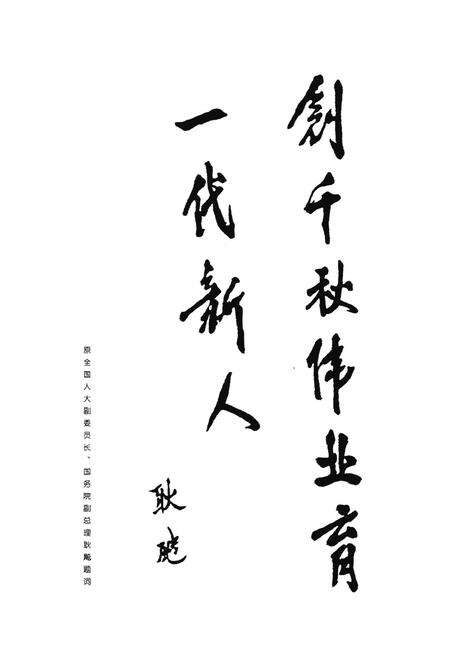 創千秋伟业育
一代新人
耿飚
原全国人大副委员长、国务院副总理耿飚题词